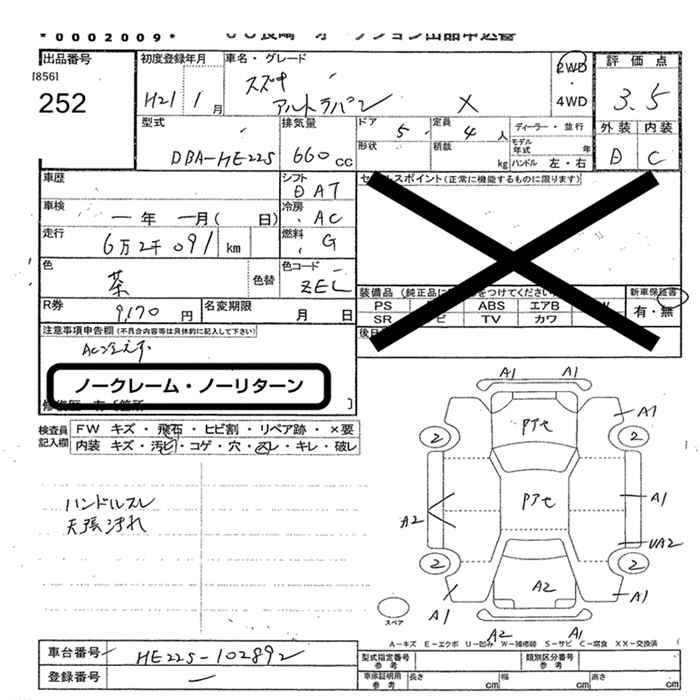 *0002009*
JU長崎 オークション出品申込書
出品番号
[856]
252
初度登録年月
H21 1月
車名・グレード
スズキ
アルトラパン X
2WD
・
4WD
評価点
3.5
外装 内装
B C
型式
DBA-HE22S
排気量
660cc
ドア
5
定員
4人
形状
積載
kg
ディーラー・並行
モデル年式 年
ハンドル 左・右
車歴
車検
一年 一月( 日)
走行
6万2千091km
シフト
AT
冷房
AC
燃料
G
色
茶
色替
色コード
ZEC
R券
9,170円
名変期限
月 日
セールスポイント(正常に機能するものに限ります)
装備品
PS
ABS
エアB
SR
TV
カワ
新車保証書
有・無
注意事項申告欄(不具合内容等は具体的に記入して下さい)
AC冷えず
ノークレーム・ノーリターン
検査員記入欄
FW キズ・飛石・ヒビ割・リペア跡・×要
内装 キズ・汚ビ・コゲ・穴・スレ・キレ・破レ
ハンドルスレ
天張汚れ
A1 A1
A1
2 2
Pアセ
Pアセ
A2
A1
UA2
2 2
A2
A1 A1
A2 A1
スペア
A－キズ E－エクボ U－凹み W－補修跡 S－サビ C－腐食 XX－交換済
車台番号
HE22S-102892
登録番号
一
型式指定番号
参考
類別区分番号
参考
車庫証明用
参考
長さ cm
幅 cm
高さ cm